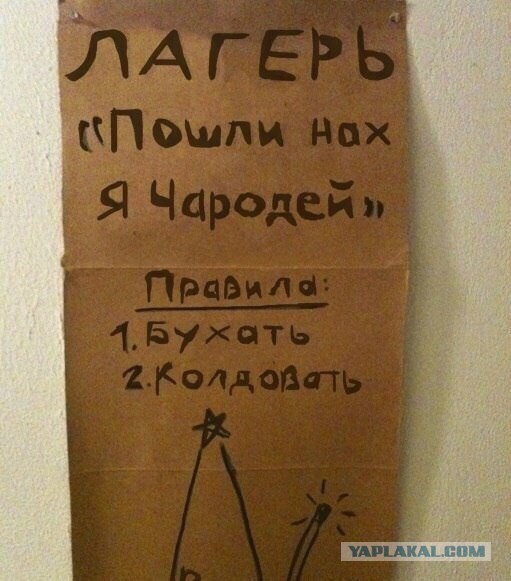 ЛАГЕРЬ
«Пошли нах
Я Чародей»
Правила:
1. Бухать
2. Колдовать
YAPLAKAL.COM